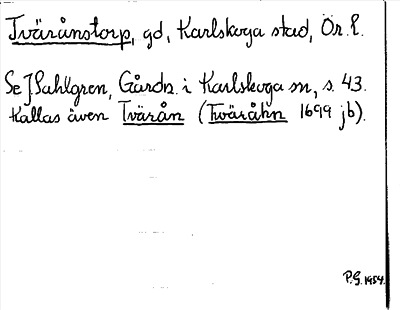 Tväråmstorp, gd, Karlskoga stad, Ör. l.
Se J Sahlgren, Gårdn. i Karlskoga sn, s. 43.
Kallas även Tvärån (Twäråhn 1699 jb).
P.G. 1954.